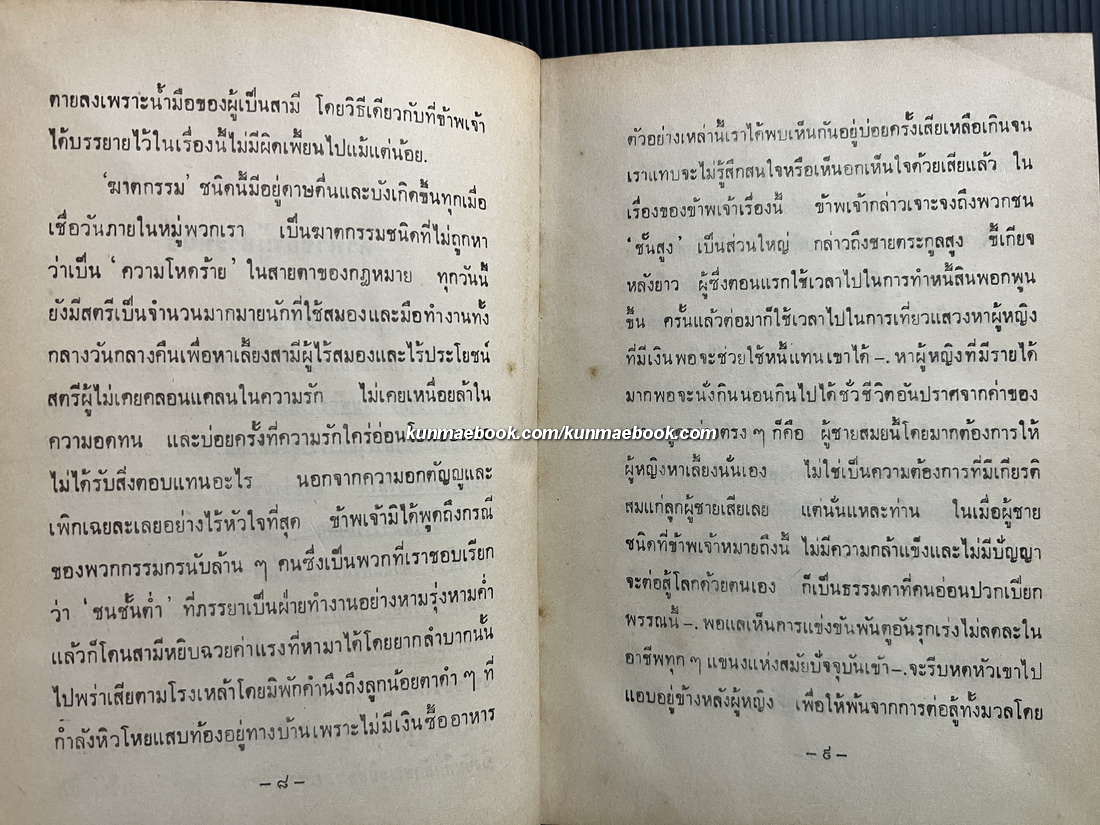 ตายลงเพราะน้ำมือของผู้เป็นสามี โดยวิธีเดียวกับที่ข้าพเจ้า
ได้บรรยายไว้ในเรื่องนี้ไม่มีผิดเพี้ยนไปแม้แต่น้อย.
‘ฆาตกรรม’ ชนิดนี้มีอยู่ดาษดื่นและบังเกิดขึ้นทุกเมื่อ
เชื่อวันภายในหมู่พวกเรา เป็นฆาตกรรมชนิดที่ไม่ถูกหา
ว่าเป็น ‘ความโหดร้าย’ ในสายตาของกฎหมาย ทุกวันนี้
ยังมีสตรีเป็นจำนวนมากมายนักที่ใช้สมองและมือทำงานทั้ง
กลางวันกลางคืนเพื่อหาเลี้ยงสามีผู้ไร้สมองและไร้ประโยชน์
สตรีผู้ไม่เคยคลอนแคลนในความรัก ไม่เคยเหนื่อยล้าใน
ความอดทน และบ่อยครั้งที่ความรักใคร่อ่อนโ
ไม่ได้รับสิ่งตอบแทนอะไร นอกจากความอกตัญญูและ
เพิกเฉยละเลยอย่างไร้หัวใจที่สุด ข้าพเจ้ามิได้พูดถึงกรณี
ของพวกกรรมกรนับล้าน ๆ คนซึ่งเป็นพวกที่เราชอบเรียก
ว่า ‘ชนชั้นต่ำ’ ที่ภรรยาเป็นฝ่ายทำงานอย่างหามรุ่งหามค่ำ
แล้วก็โดนสามีหยิบฉวยค่าแรงที่หามาได้โดยยากลำบากนั้น
ไปพร่าเสียตามโรงเหล้าโดยมิพักคำนึงถึงลูกน้อยตาดำ ๆ ที่
กำลังหิวโหยแสบท้องอยู่ทางบ้านเพราะไม่มีเงินซื้ออาหาร
– ๘ –
ตัวอย่างเหล่านี้เราได้พบเห็นกันอยู่บ่อยครั้งเสียเหลือเกินจน
เราแทบจะไม่รู้สึกสนใจหรือเห็นอกเห็นใจด้วยเสียแล้ว ใน
เรื่องของข้าพเจ้าเรื่องนี้ ข้าพเจ้ากล่าวเจาะจงถึงพวกชน
‘ชั้นสูง’ เป็นส่วนใหญ่ กล่าวถึงชายตระกูลสูง ขี้เกียจ
หลังยาว ผู้ซึ่งตอนแรกใช้เวลาไปในการทำหนี้สินพอกพูน
ขึ้น ครั้นแล้วต่อมาก็ใช้เวลาไปในการเที่ยวแสวงหาผู้หญิง
ที่มีเงินพอจะช่วยใช้หนี้แทนเขาได้ –. หาผู้หญิงที่มีรายได้
มากพอจะนั่งกินนอนกินไปได้ชั่วชีวิตอันปราศจากค่าของ
ตรง ๆ ก็คือ ผู้ชายสมยนี้โดยมากต้องการให้
ผู้หญิงหาเลี้ยงนั่นเอง ไม่ใช่เป็นความต้องการที่มีเกียรติ
สมแก่ลูกผู้ชายเสียเลย แต่นั่นแหละท่าน ในเมื่อผู้ชาย
ชนิดที่ข้าพเจ้าหมายถึงนี้ ไม่มีความกล้าแข็งและไม่มีปัญญา
จะต่อสู้โลกด้วยตนเอง ก็เป็นธรรมดาที่คนอ่อนปวกเปียก
พรรณนี้ –. พอแลเห็นการแข่งขันพันตูอันรุกเร่งไม่ลดละใน
อาชีพทุก ๆ แขนงแห่งสมัยปัจจุบันเข้า –. จะรีบหดหัวเขาไป
แอบอยู่ข้างหลังผู้หญิง เพื่อให้พ้นจากการต่อสู้ทั้งมวลโดย
– ๙ –
kunmaebook.com/kunmaebook.com